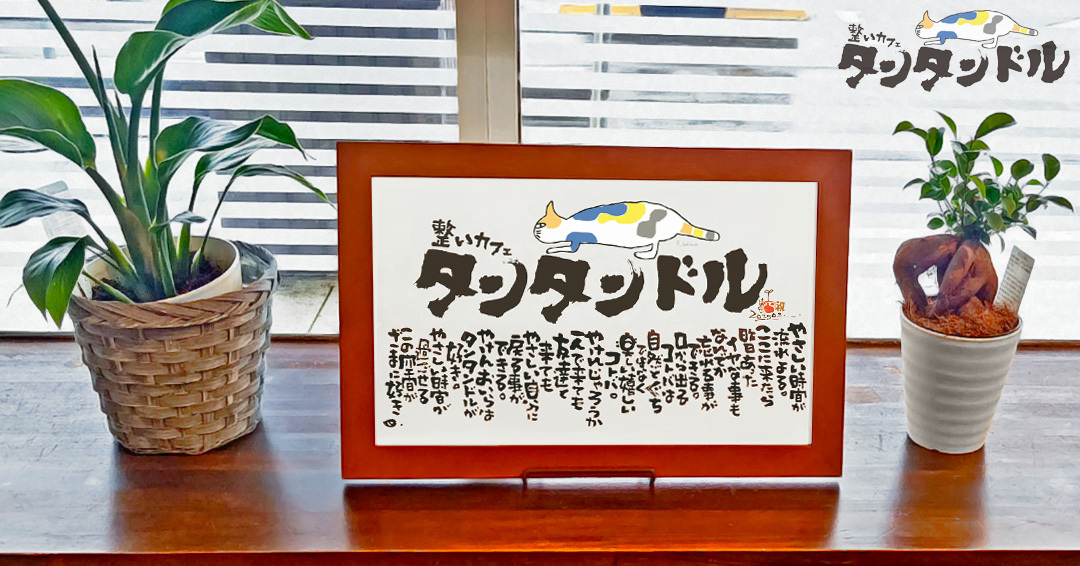 整いカフェ
タンタンドル
整いカフェ
タンタンドル
やさしい時間が
流れよる。
ここに来たら
昨日あった
イヤな事も
なぜか
忘れる事が
できる。
口から出る
コトバは
自然とぐち
ではなく
楽しい嬉しい
コトバ。
やけんじゃろうか
一人で来ても
友達と
来ても
やさしい自分に
戻る事が
できる。
やけんおいらは
タンタンドルが
好き。
やさしい時間が
過ごせる
この空間が
好き